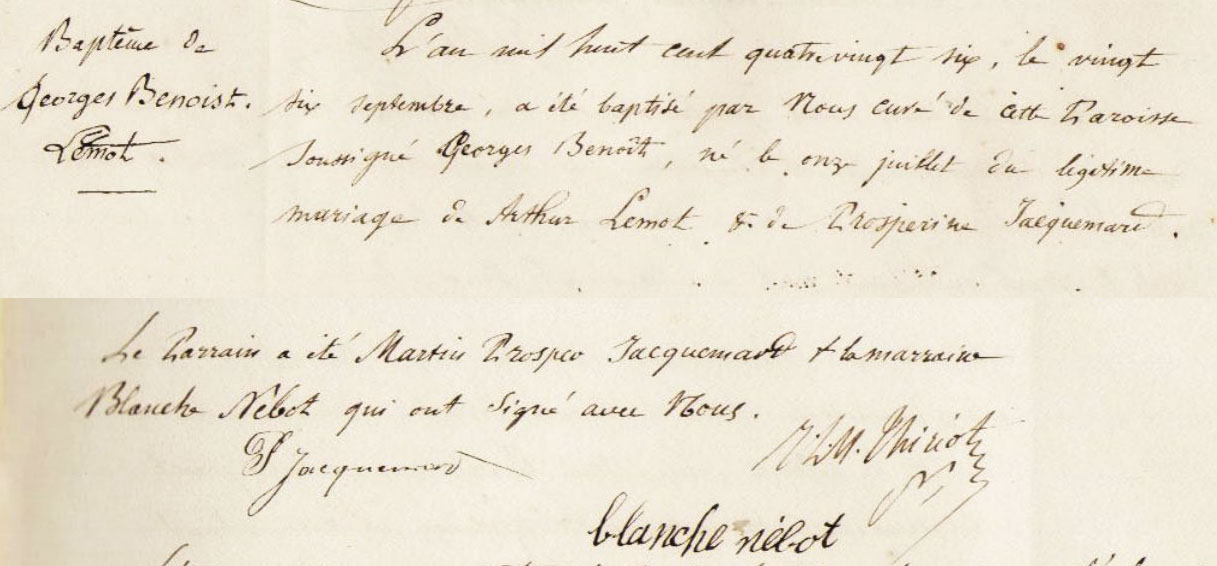 Baptême de
Georges Benoist.
Lemot.
L'an mil huit cent quatrevingt six, le vingt
six septembre, a été baptisé par Nous curé de cette Paroisse
Soussigné Georges Benoît, né le onze juillet du légitime
mariage de Arthur Lemot & de Prosperine Jacquemard.
Le Parrain a été Martin Prosper Jacquemard & la marraine
Blanche Nébot qui ont signé avec Nous.
P Jacquemard
Thiriot
blanche nébot